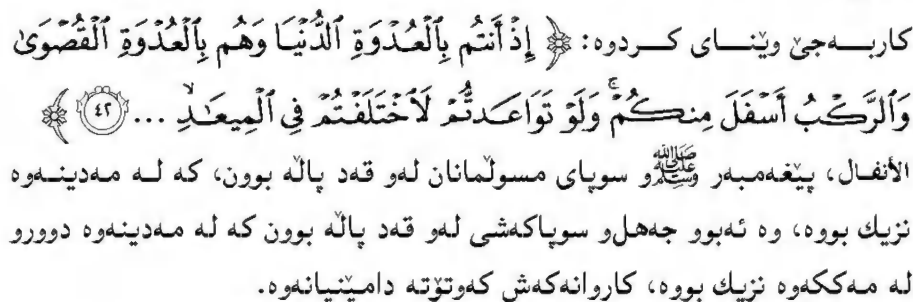 کاربـــەجێ وێنـــای کـــردوە: ﴿ إِذْ أَنتُم بِٱلْعُدْوَةِ ٱلدُّنْيَا وَهُم بِٱلْعُدْوَةِ ٱلْقُصْوَىٰ
وَٱلرَّكْبُ أَسْفَلَ مِنكُمْ ۚ وَلَوْ تَوَاعَدتُّمْ لَٱخْتَلَفْتُمْ فِى ٱلْمِيعَـٰدِ ۙ ... ٤٢ ﴾
الأنفـال، پێغەمبەر ﷺو سوپای مسوڵمانان لەو قەد پاڵە بوون، کە لـە مـەدینـەوە
نزیك بووە، وە ئەبوو جەهلو سوپاکەشی لەو قەد پاڵە بوون کە لە مەدینەوە دوورو
لە مەککەوە نزیك بووە، کاروانەکەش کەوتۆتە دامێنیانەوە.